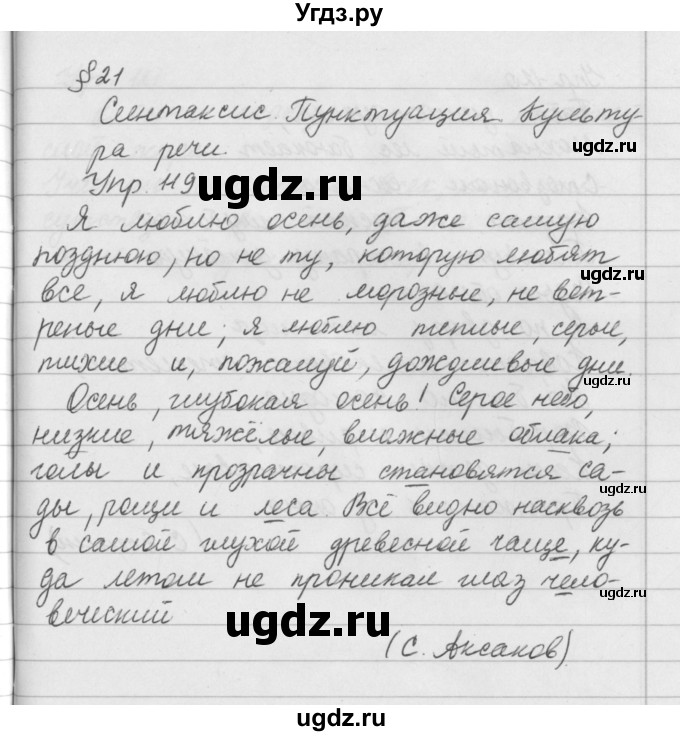 Угдз.ру
§ 21
Синтаксис. Пунктуация. Культу-
ра речи.
Упр. 119
ugdz.ru
Я люблю осень, даже самую
позднюю, но не ту, которую любят
ugdz.ru
все, я люблю не морозные, не вет-
реные дни; я люблю теплые, серые,
тихие и, пожалуй, дождливые дни.
ugdz.ru
Осень, глубокая осень! Серое небо,
низкие, тяжёлые, влажные облака;
голы и прозрачны становятся са-
ugdz.ru
ды, рощи и леса. Всё видно насквозь
в самой глухой древесной чаще, ку-
да летом не проникал глаз чело-
ugdz.ru
веческий
ugdz.ru
(С. Аксаков).
ugdz.ru